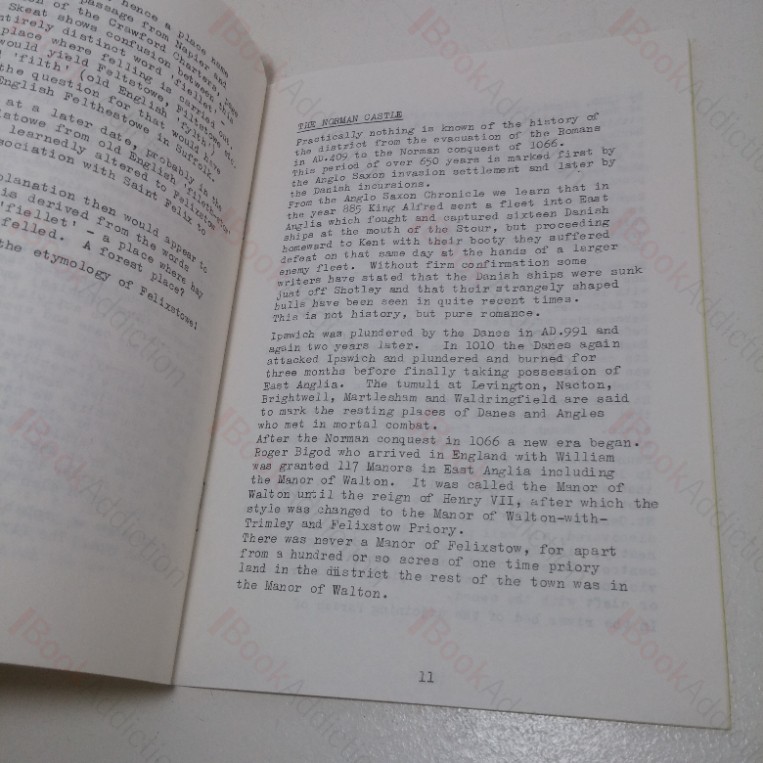 hence a place name
passage from Napier and
of the Crawford Charters,
Skeat shows confusion between
entirely distinct word 'fiellet'
place where felling is carried out.
would yield Feltstowe, Filtstowe etc.
'filth' (old English 'fylth')
the question for that would have
English Feltheatowe in Suffolk.
at a later date, probably in the
from old English
learnedly altered to Felixstow
association with Saint Felix to
explanation then would appear to
is derived from the words
'fiellet' - a place where hay
felled. A forest place?
the etymology of Felixstowe:
THE NORMAN CASTLE
Practically nothing is known of the history of
the district from the evacuation of the Romans
in AD.409 to the Norman conquest of 1066.
This period of over 650 years is marked first by
the Anglo Saxon invasion settlement and later by
the Danish incursions.
From the Anglo Saxon Chronicle we learn that in
the year 885 King Alfred sent a fleet into East
Anglia which fought and captured sixteen Danish
ships at the mouth of the Stour, but proceeding
homeward to Kent with their booty they suffered
defeat on that same day at the hands of a larger
enemy fleet. Without firm confirmation some
writers have stated that the Danish ships were sunk
just off Shotley and that their strangely shaped
hulls have been seen in quite recent times.
This is not history, but pure romance.
Ipswich was plundered by the Danes in AD.991 and
again two years later. In 1010 the Danes again
attacked Ipswich and plundered and burned for
three months before finally taking possession of
East Anglia. The tumuli at Levington, Nacton,
Brightwell, Martlesham and Waldringfield are said
to mark the resting places of Danes and Angles
who met in mortal combat.
After the Norman conquest in 1066 a new era began.
Roger Bigod who arrived in England with William
was granted 117 Manors in East Anglia including
the Manor of Walton. It was called the Manor of
Walton until the reign of Henry VII, after which the
style was changed to the Manor of Walton-with-
Trimley and Felixstow Priory.
There was never a Manor of Felixstow, for apart
from a hundred or so acres of one time priory
land in the district the rest of the town was in
the Manor of Walton.
11